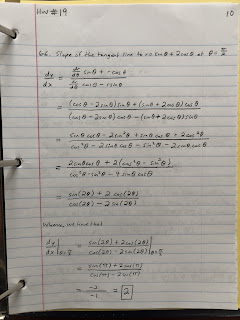 HW #19
10
6.6. Slope of the tangent line to r = sin θ + 2 cos θ at θ = π/2
dy/dx = (dr/dθ sin θ + r cos θ) / (dr/dθ cos θ - r sin θ)
= ((cos θ - 2 sin θ) sin θ + (sin θ + 2 cos θ) cos θ) / ((cos θ - 2 sin θ) cos θ - (sin θ + 2 cos θ) sin θ)
= (sin θ cos θ - 2 sin² θ + sin θ cos θ + 2 cos² θ) / (cos² θ - 2 sin θ cos θ - sin² θ - 2 sin θ cos θ)
= (2 sin θ cos θ + 2 (cos² θ - sin² θ)) / (cos² θ - sin² θ - 4 sin θ cos θ)
= (sin(2θ) + 2 cos(2θ)) / (cos(2θ) - 2 sin(2θ))
Whence, we find that
dy/dx |θ=π/2 = (sin(2θ) + 2 cos(2θ)) / (cos(2θ) - 2 sin(2θ)) |θ=π/2
= (sin(π) + 2 cos(π)) / (cos(π) - 2 sin(π))
= -2/-1 = 2